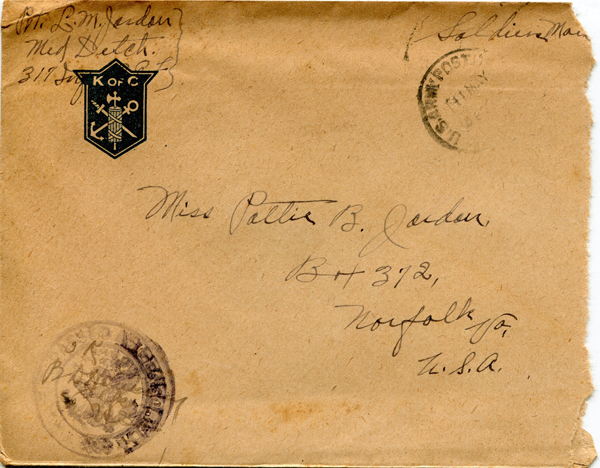 Pvt. L. M. Jordan
Med Detch.
317
Soldiers Mail
K OF C
U.S. ARMY POST
Miss Pattie B. Jordan,
Box 372,
Norfolk Va,
U.S.A.
O.K.